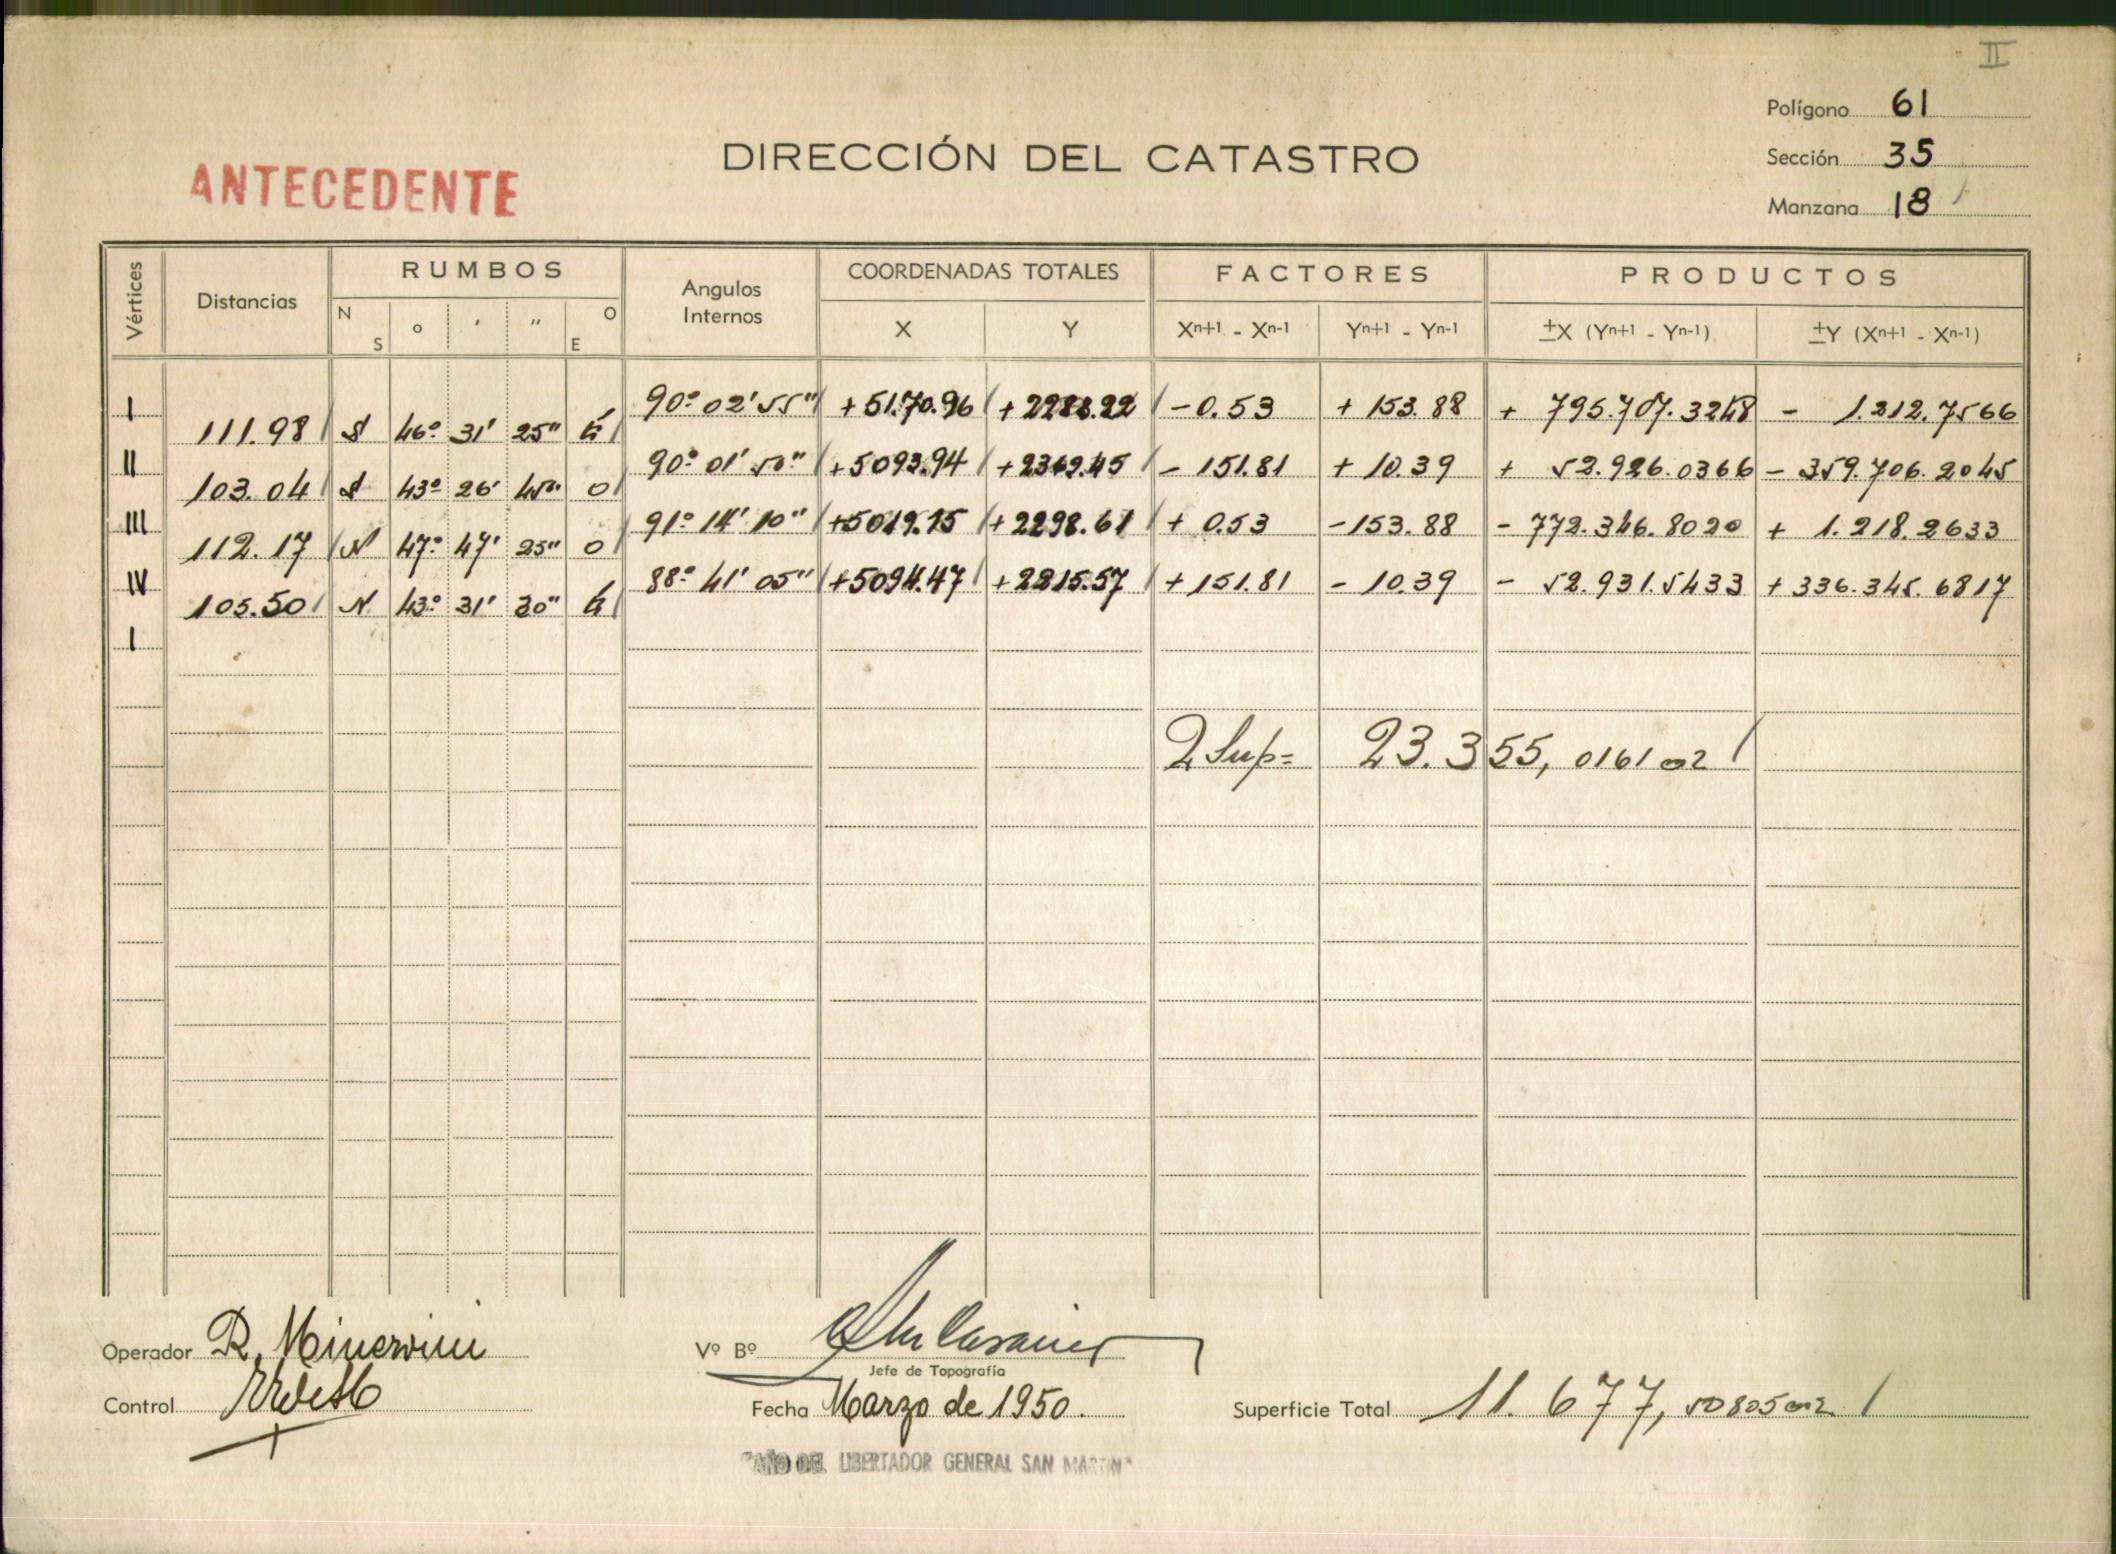 II
Polígono 61
Sección 35
Manzana 18
DIRECCIÓN DEL CATASTRO
ANTECEDENTE
Vértices Distancias RUMBOS Angulos Internos COORDENADAS TOTALES FACTORES PRODUCTOS
N S o ' " O E X Y Xn+1 - Xn-1 Yn+1 - Yn-1 ±X (Yn+1 - Yn-1) ±Y (Xn+1 - Xn-1)
I 90º 02' 55" +5170.96 +2288.22 -0.53 +153.88 + 795.707.3248 - 1.212.7566
111.98 S 46º 31' 25" E
II 90º 01' 50" +5093.94 +2369.45 -151.81 +10.39 + 52.926.0366 - 359.706.2045
103.04 S 43º 26' 45" O
III 91º 14' 10" +5019.15 +2298.61 +0.53 -153.88 - 772.346.8020 + 1.218.2633
112.17 N 47º 47' 25" O
IV 88º 41' 05" +5094.47 +2215.57 +151.81 -10.39 - 52.931.5433 + 336.345.6817
105.50 N 43º 31' 30" E
I
2 Sup= 23.355,0161 m2
Operador R. Minervini
Vº Bº
Jefe de Topografía
Control
Fecha Marzo de 1950.
Superficie Total 11.677,50805 m2
"AÑO DEL LIBERTADOR GENERAL SAN MARTIN"